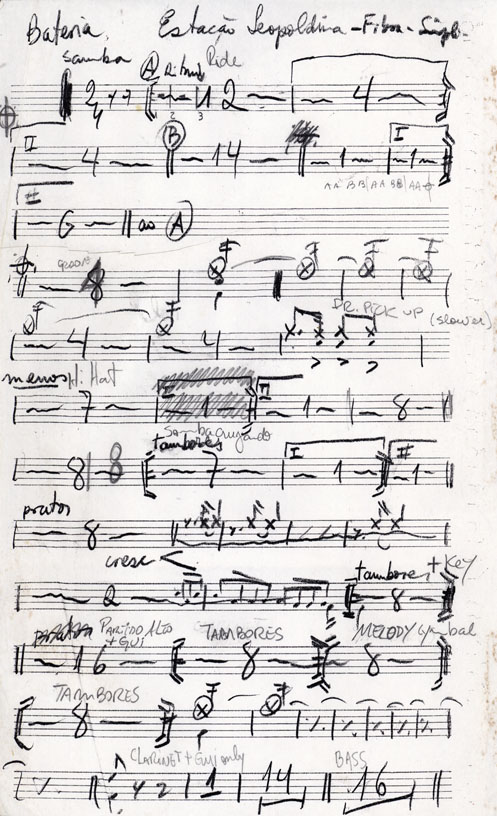 Bateria Estação Leopoldina - Fibra -
samba A Ride
2 1 2 4
1 2 3
II B I
4 14 1 1
AA BB AA BB AA
II
6 ao A
GROOVE
8
DR. PICK UP (slower)
4 4
menos Hi Hat I II
7 1 1 8
samba
tambores I II
8 8 7 1 1
pratos
8
cresc <
tambores + Key
2 8
PARTIDO ALTO + GUI TAMBORES MELODY cymbal
16 8 8
TAMBORES
8
CLARINET + GUI only BASS
1 14 16